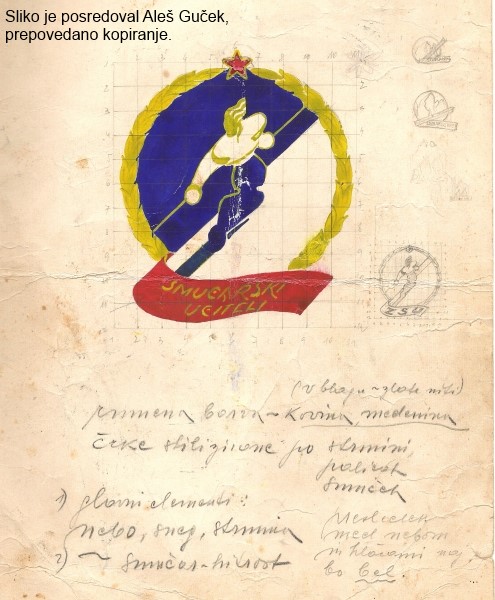 Sliko je posredoval Aleš Guček,
prepovedano kopiranje.
SMUČARSKI
UČITELJ
ZSU
(v blagu - zlate niti)
rumena barva - kovina, medenina
Črke stilizirane po strmini,
palicah
smučeh
1) glavni elementi:
nebo, sneg, strmina
2) ~ smučar - hitrost
med nebom
in hlačami naj
bo bel.